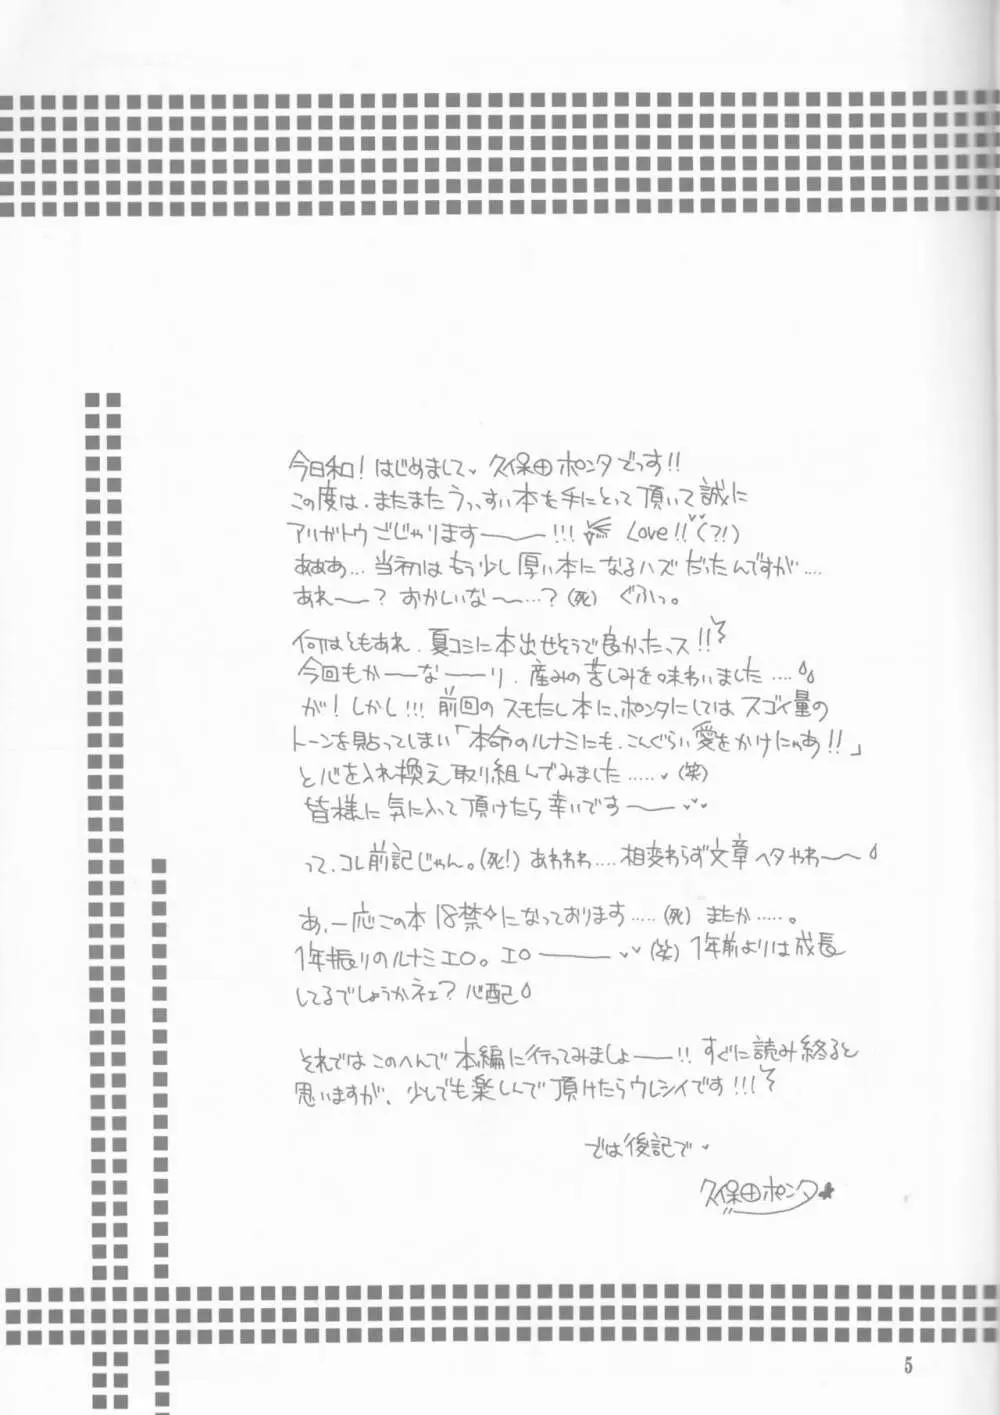 今日和！はじめまして♥久保田ポンタでっす!!
この度は、またまたうっっすい本を手にとって頂いて誠に
アリガトウごじゃりますー〜ー!!! Love!!♥(?!)
あああ…当初はもう少し厚い本になるハズだったんですが……
あれ〜ー？おかしいな〜…？(死) ぐふっ。
何はともあれ、夏コミに本出せそうで良かったっス!!
今回もかーーなーーり、産みの苦しみを味わいました……
が！しかし!!!前回のスモたし本に、ポンタにしてはスゴイ量の
トーンを貼ってしまい「本命のルナミにも、こんぐらい愛をかけにゃあ!!」
と心を入れ換え取り組んでみました……♥(笑)
皆様に気に入って頂けたら幸いですー〜ー♥♥
って、コレ前記じゃん。(死！) あわわわ……相変わらず文章ヘタやわ〜〜
あ、一応この本18禁になっております……(死) またか……。
1年振りのルナミエロ。エロ———♥♥(笑) 1年前よりは成長
してるでしょうかネェ？心配
それではこのへんで本編に行ってみましょ〜ー!!すぐに読み終ると
思いますが、少しでも楽しんで頂けたらウレシイです!!!
では後記で♥
久保田ポンタ★
5